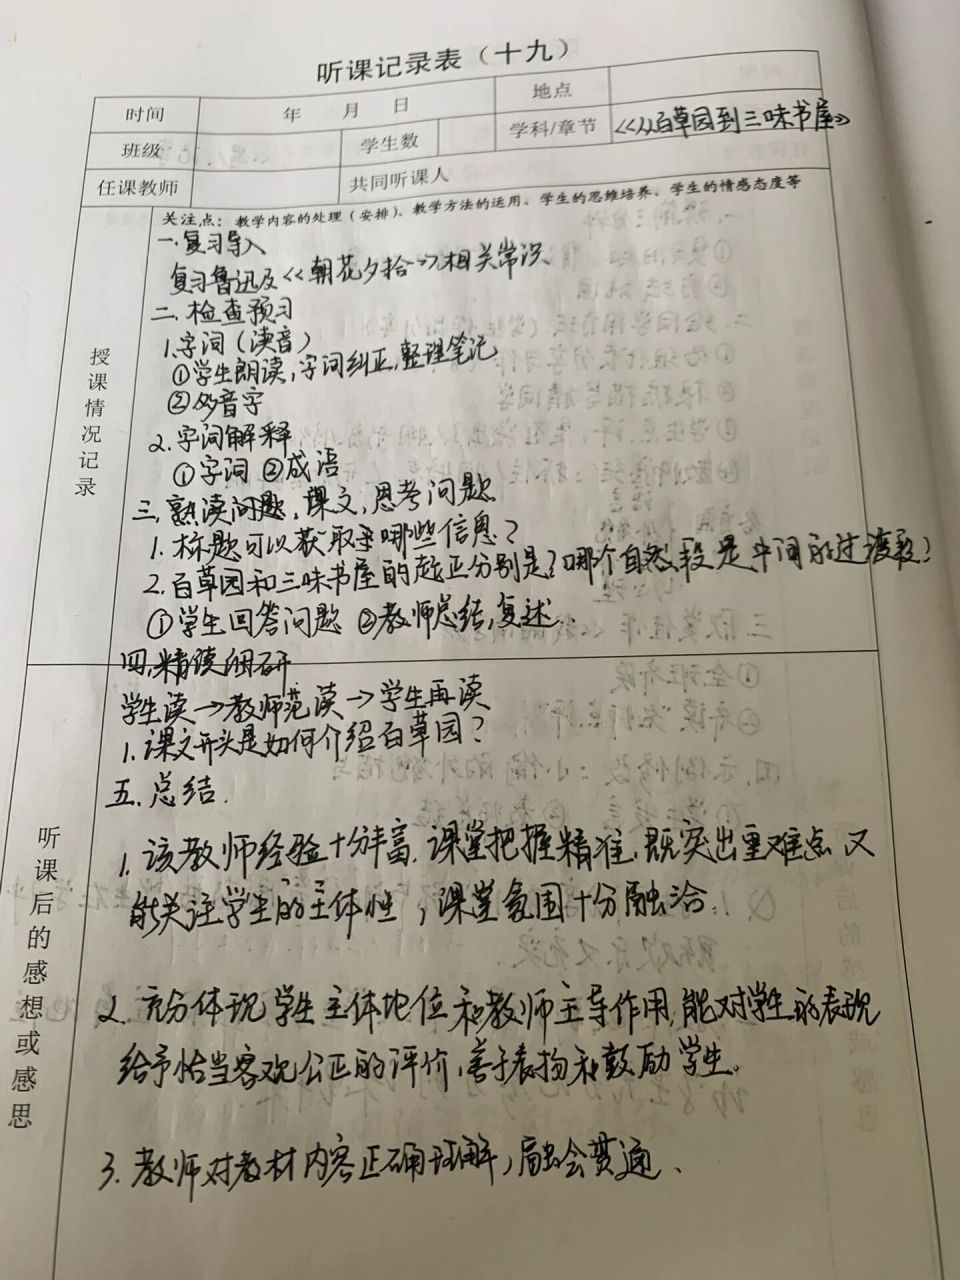 听课记录表（十九）
时间 年 月 日 地点
班级 学生数 学科/章节 《从百草园到三味书屋》
任课教师 共同听课人
关注点：教学内容的处理（安排）、教学方法的运用、学生的思维培养、学生的情感态度等
授课情况记录
一.复习导入
复习鲁迅及《朝花夕拾》相关常识
二.检查预习
1.字词（读音）
①学生朗读,字词纠正,整理笔记
②多音字
2.字词解释
①字词 ②成语
三.熟读问题,课文,思考问题
1.标题可以获取哪些信息？
2.百草园和三味书屋的起止分别是?哪个自然段是中间的过渡段？
①学生回答问题 ②教师总结,复述.
四.精读细研
学生读→教师范读→学生再读
1.课文开头是如何介绍百草园？
五.总结.
听课后的感想或感思
1.该教师经验十分丰富.课堂把握精准,既突出重难点又
能关注学生的主体性,课堂氛围十分融洽.
2.充分体现学生主体地位和教师主导作用,能对学生的表现
给予恰当客观公正的评价,善于表扬和鼓励学生.
3.教师对教材内容正确理解,融会贯通、